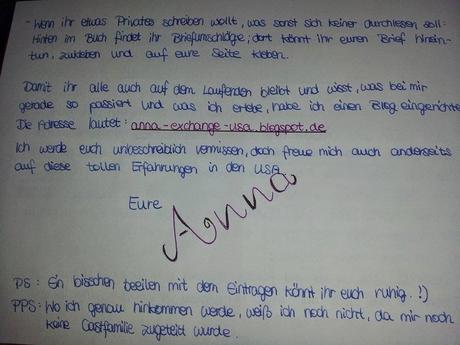 - Wenn ihr etwas Privates schreiben wollt, was sonst sich keiner durchlesen soll:
Hinten im Buch findet ihr Briefumschläge; dort könnt ihr euren Brief hinein-
tun, zukleben und auf eure Seite kleben.
Damit ihr alle auch auf dem Laufenden bleibt und wisst, was bei mir
gerade so passiert und was ich erlebe, habe ich einen Blog eingerichte
Die Adresse lautet: anna-exchange-usa.blogspot.de
Ich werde euch unbeschreiblich vermissen, doch freue mich auch anderseits
auf diese tollen Erfahrungen in den USA
Eure
Anna
PS: Ein bisschen beeilen mit dem Eintragen könnt ihr euch ruhig. :)
PPS: Wo ich genau hinkommen werde, weiß ich noch nicht, da mir noch
keine Gastfamilie zugeteilt wurde.